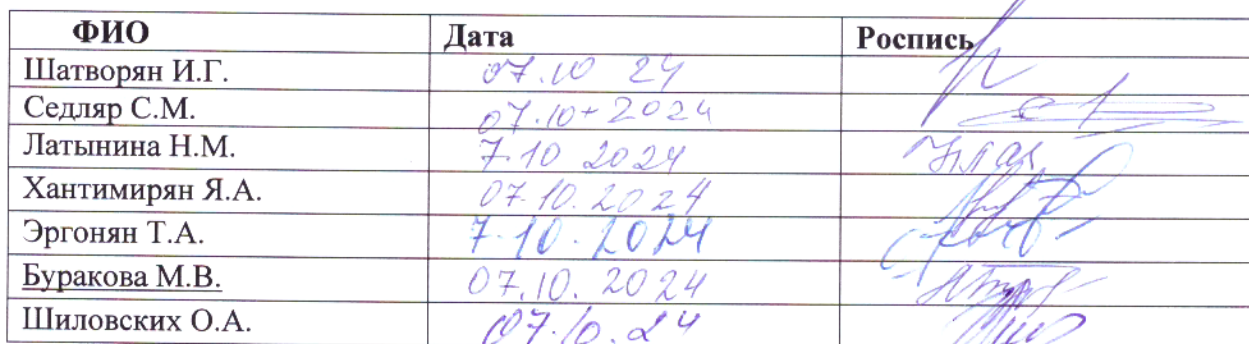 ФИО Дата Роспись
Шатворян И.Г. 07.10 24
Седляр С.М. 07.10 2024
Латынина Н.М. 7.10 2024
Хантимирян Я.А. 07.10.2024
Эргонян Т.А. 7.10.2024
Буракова М.В. 07.10.2024
Шиловских О.А. 07.10.24